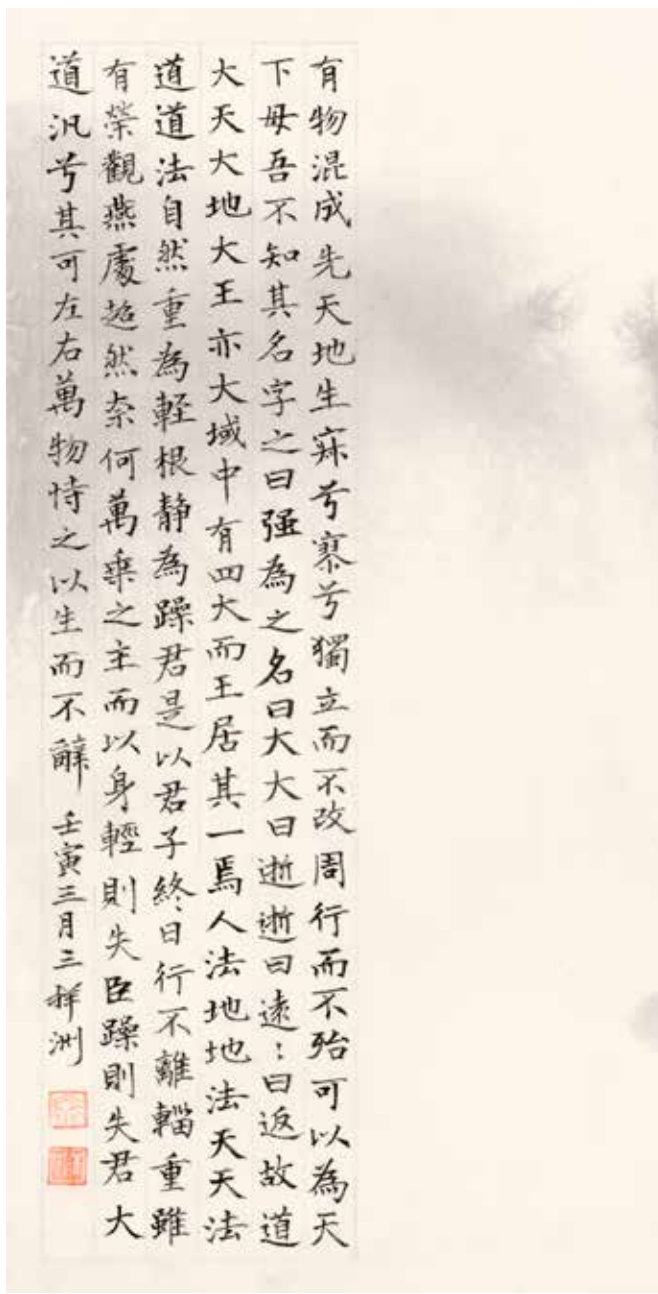 有物混成先天地生寂兮寥兮獨立而不改周行而不殆可以為天
下母吾不知其名字之曰强為之名曰大大曰逝逝曰遠：曰返故道
大天大地大王亦大域中有四大而王居其一焉人法地地法天天法
道道法自然重為軽根静為躁君是以君子終日行不離輜重雖
有榮觀燕處超然奈何萬乗之主而以身輕則失臣躁則失君大
道汎兮其可左右萬物恃之以生而不辭 壬寅三月三祥洲